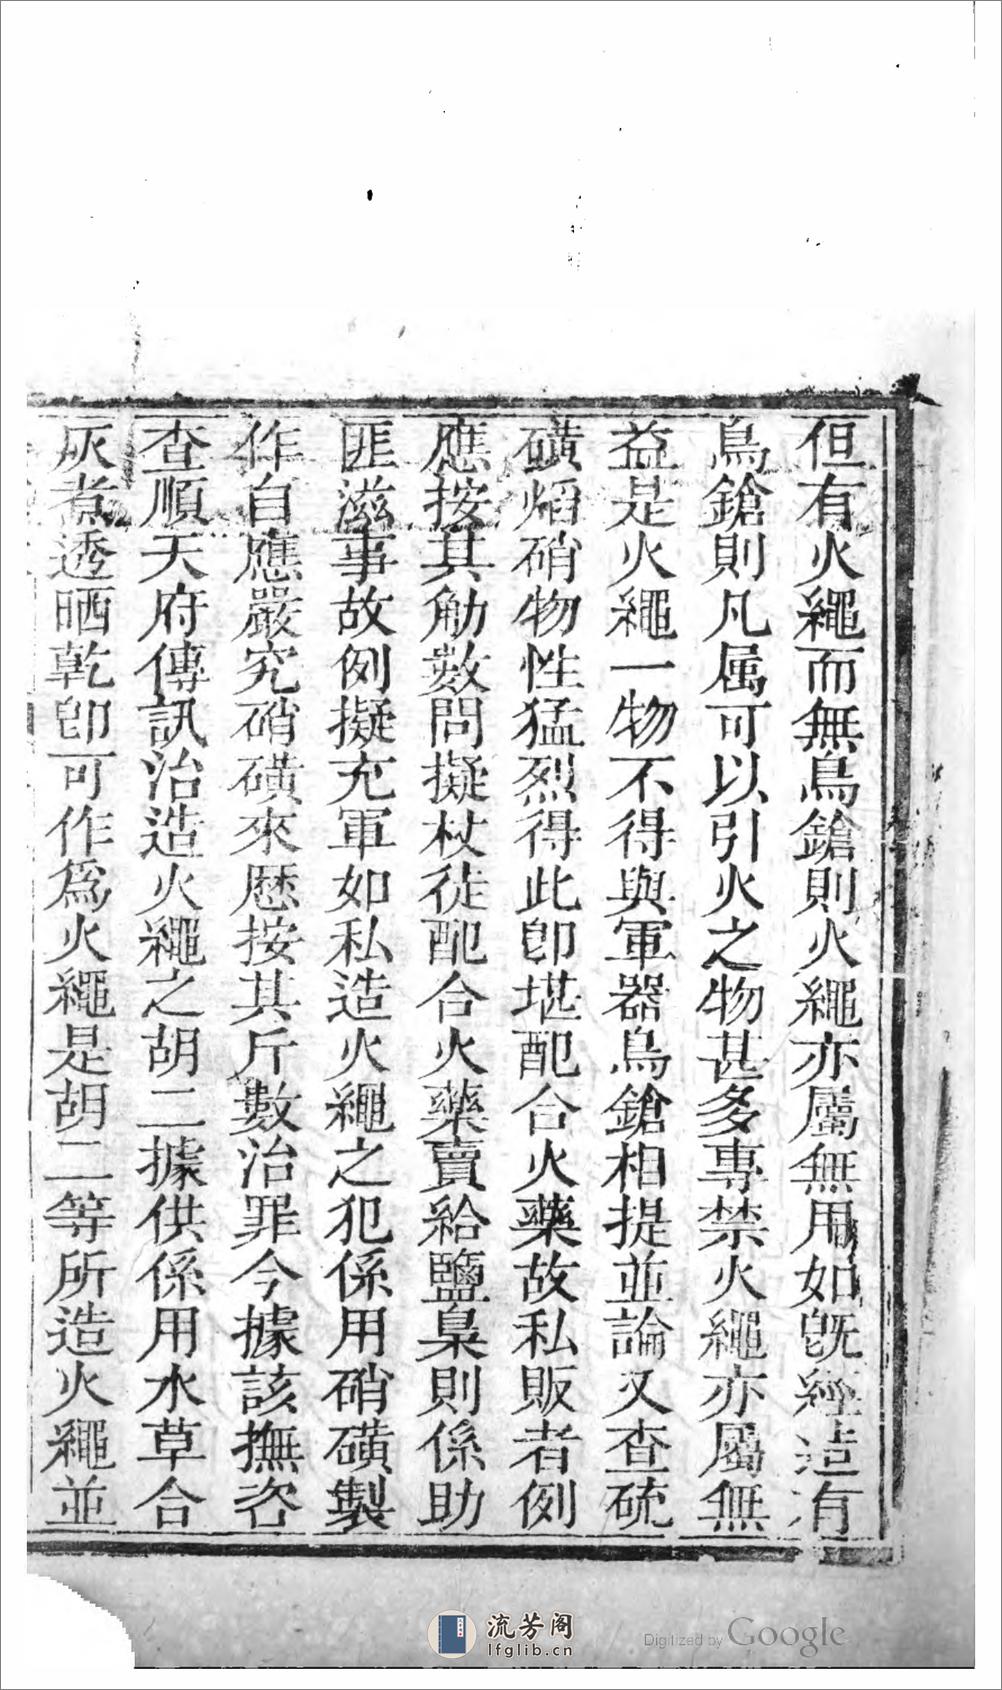 但有火繩而無鳥鎗則火繩亦屬無用如旣經造有
鳥鎗則凡属可以引火之物甚多專禁火繩亦屬無
益是火繩一物不得與軍器鳥鎗相提並論又查硫
磺焰硝物性猛烈得此卽堪配合火藥故私販者例
應按其觔數問擬杖徒配合火藥賣給鹽梟則係助
匪滋事故例擬充軍如私造火繩之犯係用硝磺製
作自應嚴究硝磺來歷按其斤數治罪今據該撫咨
查順天府傳訊治造火繩之胡二據供係用水草合
灰煮透晒乾卽可作爲火繩是胡二等所造火繩並
流芳阁
lfglib.cn
Digitized by Google